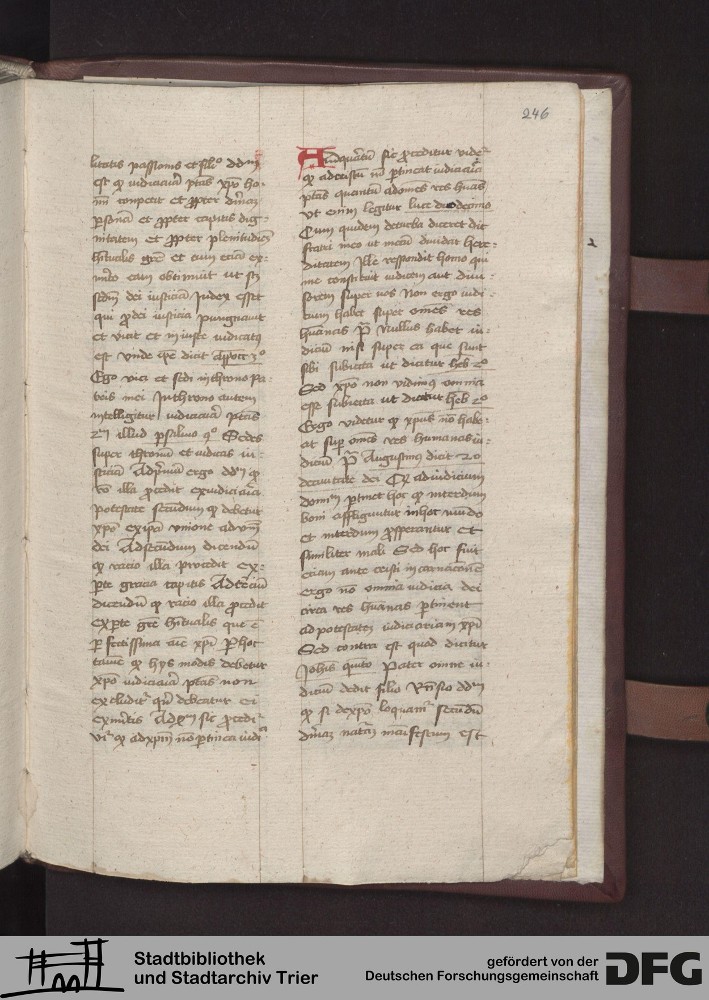 246
litatis passionis et filio ddm
est q iudiciaria ptas xpo ho
ni competit et ppter diuinam
psonam et ppter capitis dig
nitatem et ppter plenitudinem
habitualis gre et cum etiam ex
merito eam obtinuit ut
sedm dei iusticiam Judex esset
qui pro dei iusticia pungnauit
et vicit et iniuste iudicatus
est Vnde ipe dicit Apoc 3o
Ego vici et sedi in throno Pa
tris mei In throno autem
intelligitur iudiciaria ptas
illud psalmo 9o Sedes
super thronum et iudicas iu
sticiam Ad pmum ergo ddm q
ro illa procedit ex iudiciaria
potestate secundum q debetur
xpo ex ipsa vnione ad
dei Ad secundum dicendum
q racio illa procedit ex
pte gracia capitis Ad tercium
dicendum q racio illa procedit
ex pte gre habitualis que e
p fectissima aie xpi P hoc
tamen q hys modis debetur
xpo iudiciaria ptas non
excluditr debeatur ei
ex meritis Ad sic procedir
vir q ad xpm no ptineat iudi
Ad quartum sic proceditur videtr
q ad cristum no ptineat iudiciaria
ptas quantum ad omes res huas
Vt enim legitur luce duodecimo
Cum quidem de turba diceret dic
fratri meo ut mecum diuidat here
ditatem Ille respondit homo qui
me constituit iudicem aut diui
sorem super vos Non ergo iudi
cium habet super omes res
huanas P Nullus habet iu
dicium nisi super ea que sunt
sibi subiecta ut dicitur heb 2o
Sed xpo non vidimus omnia
esse subiecta ut dicitur heb 2o
Ergo videtur q xpus no habe
at sup omes res humanas iu
dicium P Augustinus dicit 20
de ciuitate dei Q ad iudicium
diuinum ptinet hoc q interdum
boni affliguntur in hoc mundo
et interdum prosperantur Et
similiter mali Sed hoc fuit
eciam ante cristi incarnacionem
Ergo no omnia iudicia dei
circa res huanas ptinent
ad potestatem iudiciariam xpi
Sed contra est quod dicitur
Johis quinto Pater omne iu
dicium dedit filio Rnsio ddm
q si de xpo loquamr secundum
diuinam naturam manifestum est
2
Stadtbibliothek
und Stadtarchiv Trier
gefördert von der
Deutschen Forschungsgemeinschaft
DFG